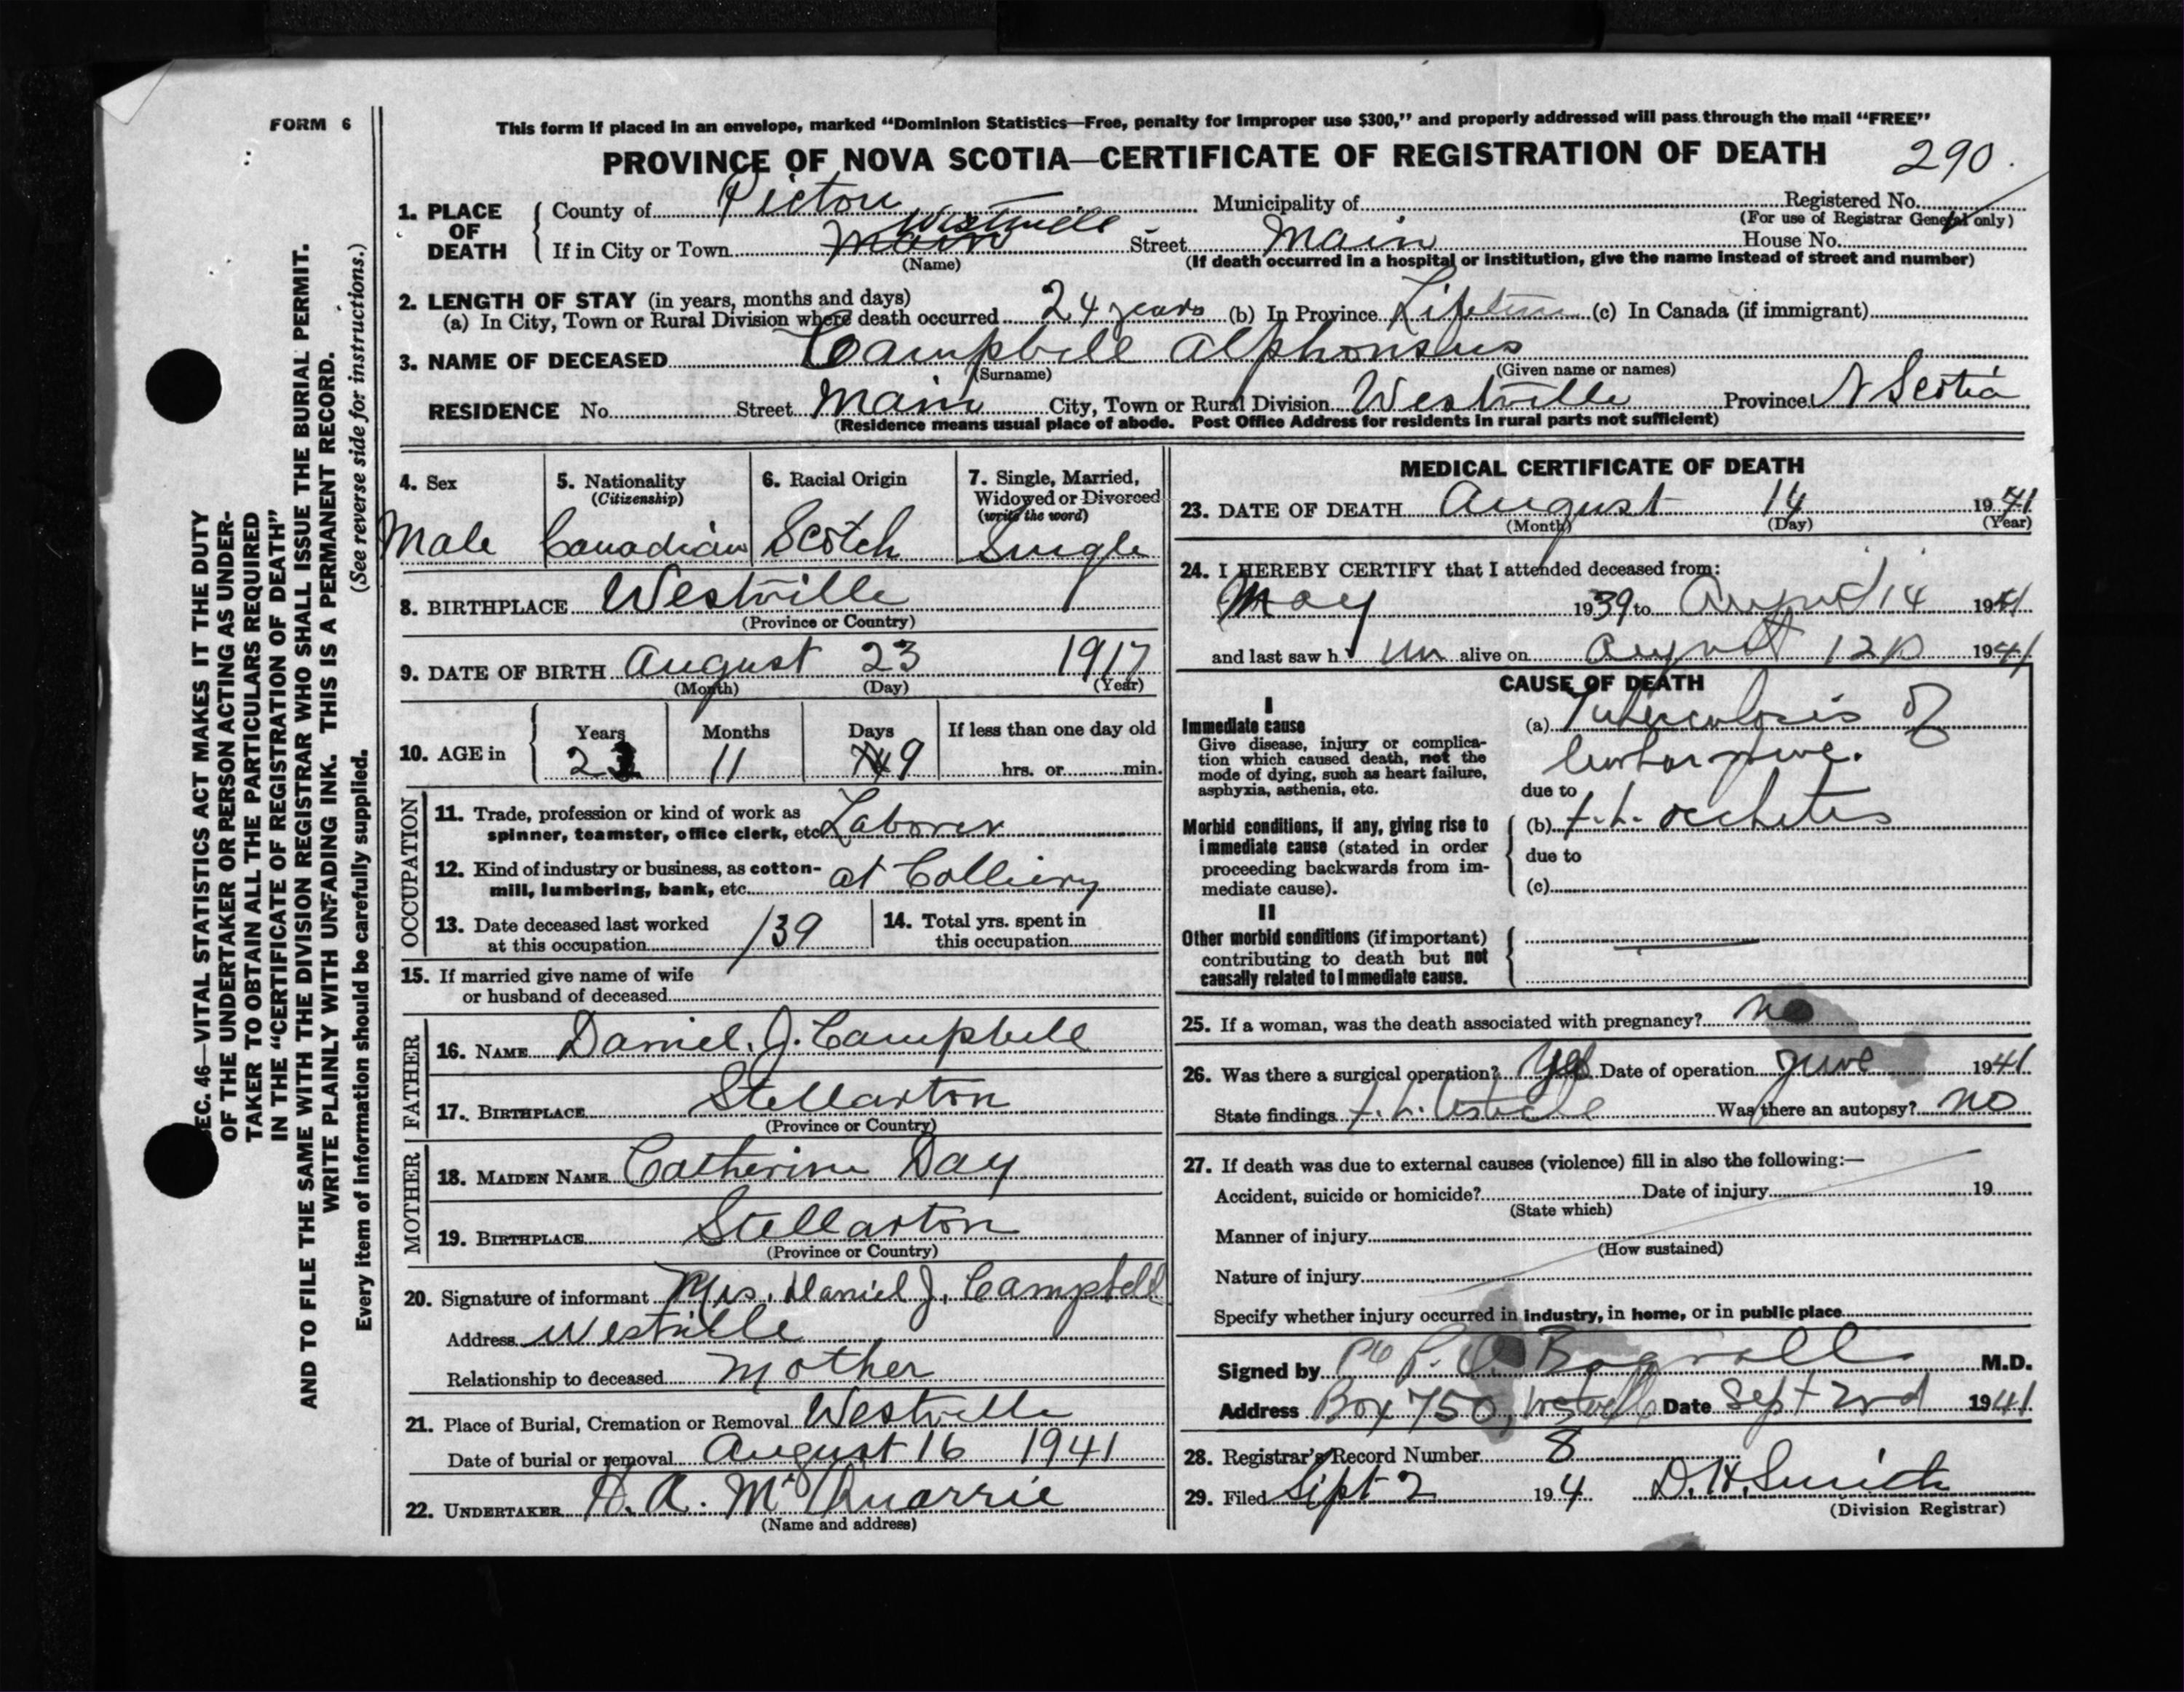 FORM 6
This form if placed in an envelope, marked "Dominion Statistics—Free, penalty for improper use $300," and properly addressed will pass through the mail "FREE"
PROVINCE OF NOVA SCOTIA—CERTIFICATE OF REGISTRATION OF DEATH 290.
1. PLACE OF DEATH
County of Pictou Municipality of Registered No.
(For use of Registrar General only)
If in City or Town Main Westville Street Main House No.
(Name) (If death occurred in a hospital or institution, give the name instead of street and number)
2. LENGTH OF STAY (in years, months and days)
(a) In City, Town or Rural Division where death occurred 24 years (b) In Province Lifetime (c) In Canada (if immigrant)
3. NAME OF DECEASED Campbell Alphonsus
(Surname) (Given name or names)
RESIDENCE No. Street Main City, Town or Rural Division Westville Province N Scotia
(Residence means usual place of abode. Post Office Address for residents in rural parts not sufficient)
4. Sex
Male
5. Nationality
(Citizenship)
Canadian
6. Racial Origin
Scotch
7. Single, Married,
Widowed or Divorced
(write the word)
Single
8. BIRTHPLACE Westville
(Province or Country)
9. DATE OF BIRTH August 23 1917
(Month) (Day) (Year)
10. AGE in Years Months Days If less than one day old
23 11 9 hrs. or min.
OCCUPATION
11. Trade, profession or kind of work as
spinner, teamster, office clerk, etc. Laborer
12. Kind of industry or business, as cotton-
mill, lumbering, bank, etc. at Colliery
13. Date deceased last worked
at this occupation /39
14. Total yrs. spent in
this occupation
15. If married give name of wife
or husband of deceased
FATHER
16. NAME Daniel. J. Campbell
17. BIRTHPLACE Stellarton
(Province or Country)
MOTHER
18. MAIDEN NAME Catherine Day
19. BIRTHPLACE Stellarton
(Province or Country)
20. Signature of informant Mrs. Daniel J. Campbell
Address Westville
Relationship to deceased Mother
21. Place of Burial, Cremation or Removal Westville
Date of burial or removal August 16 1941
22. UNDERTAKER H. A. McQuarrie
(Name and address)
MEDICAL CERTIFICATE OF DEATH
23. DATE OF DEATH August 14 1941
(Month) (Day) (Year)
24. I HEREBY CERTIFY that I attended deceased from:
May 1939 to August 14 1941
and last saw h im alive on August 12 1941
CAUSE OF DEATH
I
Immediate cause
Give disease, injury or complica-
tion which caused death, not the
mode of dying, such as heart failure,
asphyxia, asthenia, etc.
(a) Tuberculosis of
due to
Morbid conditions, if any, giving rise to
immediate cause (stated in order
proceeding backwards from im-
mediate cause).
(b)
due to
(c)
II
Other morbid conditions (if important)
contributing to death but not
causally related to immediate cause.
25. If a woman, was the death associated with pregnancy? no
26. Was there a surgical operation? Yes Date of operation June 1941
State findings Was there an autopsy? no
27. If death was due to external causes (violence) fill in also the following:—
Accident, suicide or homicide? Date of injury 19
(State which)
Manner of injury
(How sustained)
Nature of injury
Specify whether injury occurred in industry, in home, or in public place
Signed by Bagnall M.D.
Address Box 750, Westville Date Sept 2nd 1941
28. Registrar's Record Number 8
29. Filed Sept 2 194 D. H. Smith
(Division Registrar)
EC. 46—VITAL STATISTICS ACT MAKES IT THE DUTY
OF THE UNDERTAKER OR PERSON ACTING AS UNDER-
TAKER TO OBTAIN ALL THE PARTICULARS REQUIRED
IN THE "CERTIFICATE OF REGISTRATION OF DEATH"
AND TO FILE THE SAME WITH THE DIVISION REGISTRAR WHO SHALL ISSUE THE BURIAL PERMIT.
WRITE PLAINLY WITH UNFADING INK. THIS IS A PERMANENT RECORD.
Every item of information should be carefully supplied. (See reverse side for instructions.)